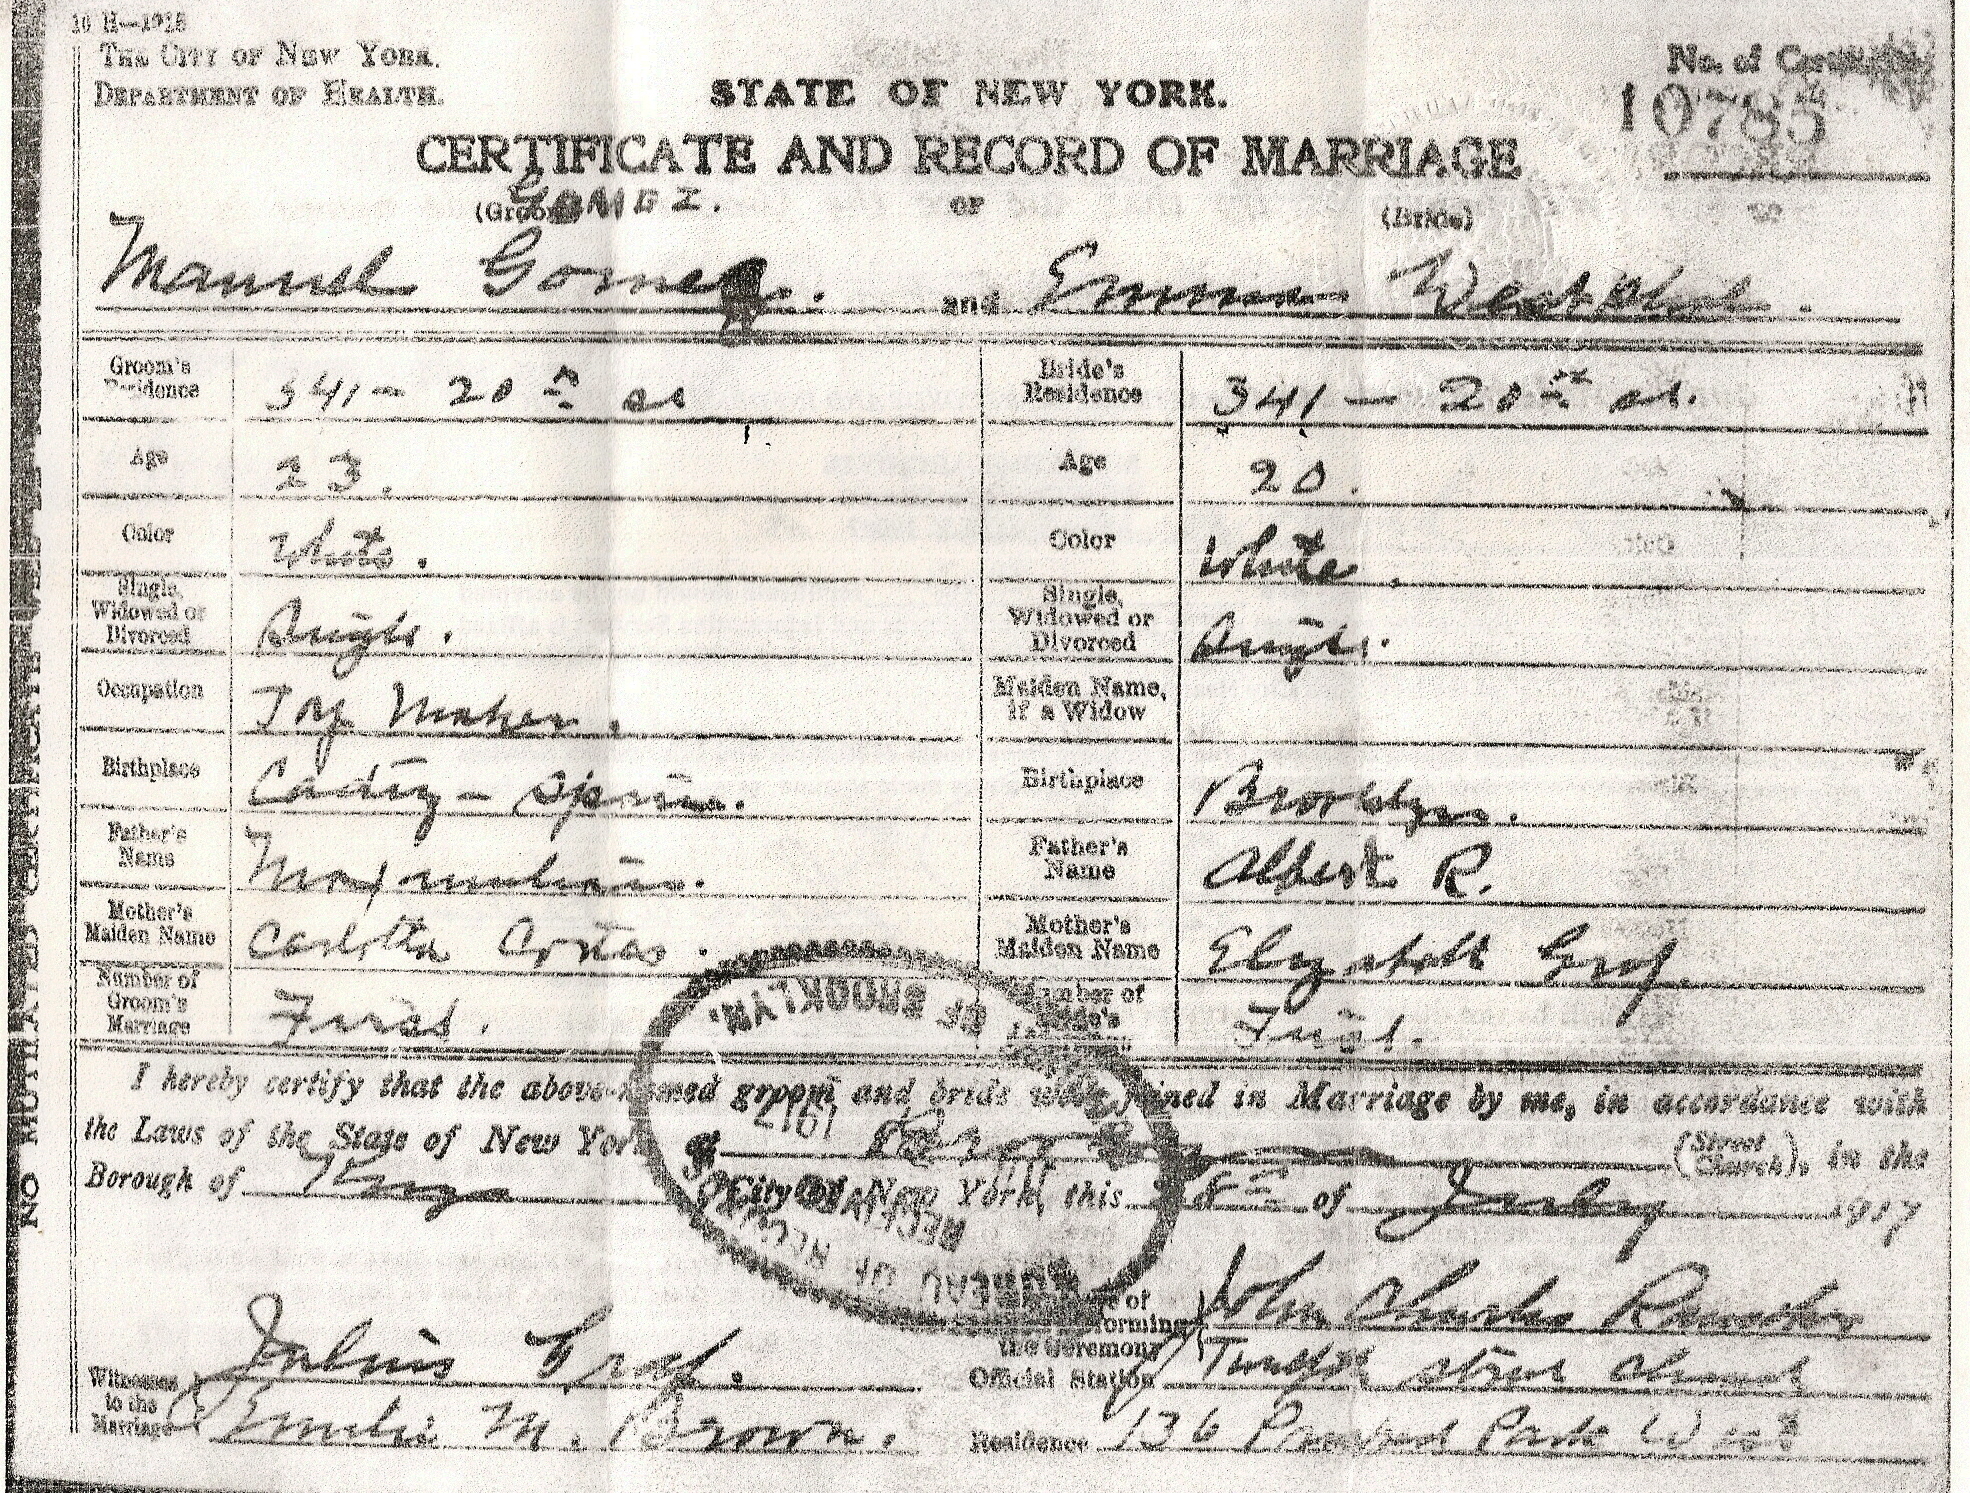 10 H—1915
THE CITY OF NEW YORK.
DEPARTMENT OF HEALTH.
STATE OF NEW YORK.
No. of Certificate
10785
CERTIFICATE AND RECORD OF MARRIAGE
GOMEZ.
(Groom) OF (Bride)
Manuel Gomez. and Emma
Groom's Residence 341 - 20th st
Bride's Residence 341 - 20th st.
Age 23.
Age 20.
Color White.
Color White.
Single, Widowed or Divorced Single.
Single, Widowed or Divorced Single.
Occupation Toy Maker.
Maiden Name, if a Widow
Birthplace Cadiz - Spain.
Birthplace Brooklyn.
Father's Name Maximiliano.
Father's Name Albert R.
Mother's Maiden Name Carlotta
Mother's Maiden Name Elizabeth Graf.
Number of Groom's Marriage First.
Number of Bride's First.
I hereby certify that the above-named groom and bride were joined in Marriage by me, in accordance with
the Laws of the State of New York (Street Church), in the
Borough of Kings City of New York, this of July 1917
OF BROOKLYN.
1917
RECEIVED
BUREAU OF
Witnesses to the Marriage
Julius Graf.
Emelie M. Brown.
the Ceremony John Charles
Official Station Twelfth street church
Residence 136 Park West
NO MUTILATED CERTIFICATE